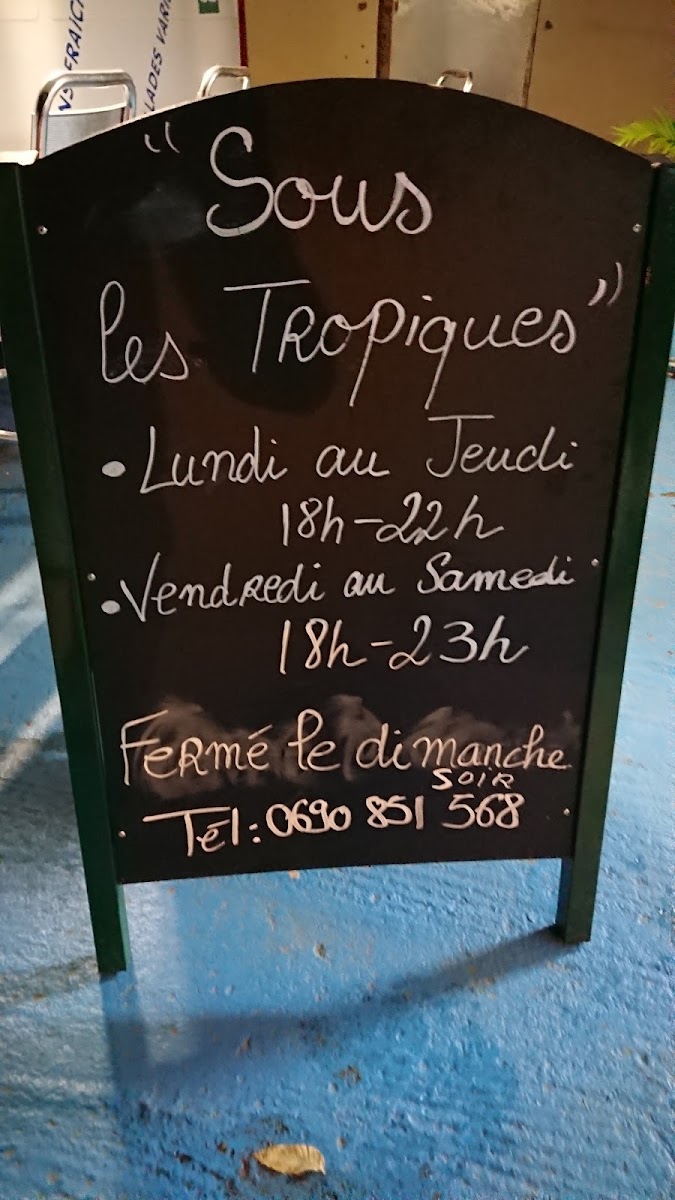 NS FRAICH
LADES VARI
"Sous
les Tropiques"
• Lundi au Jeudi
18h-22h
• Vendredi au Samedi
18h-23h
Fermé le dimanche
SOIR
Tél: 0690 851 568